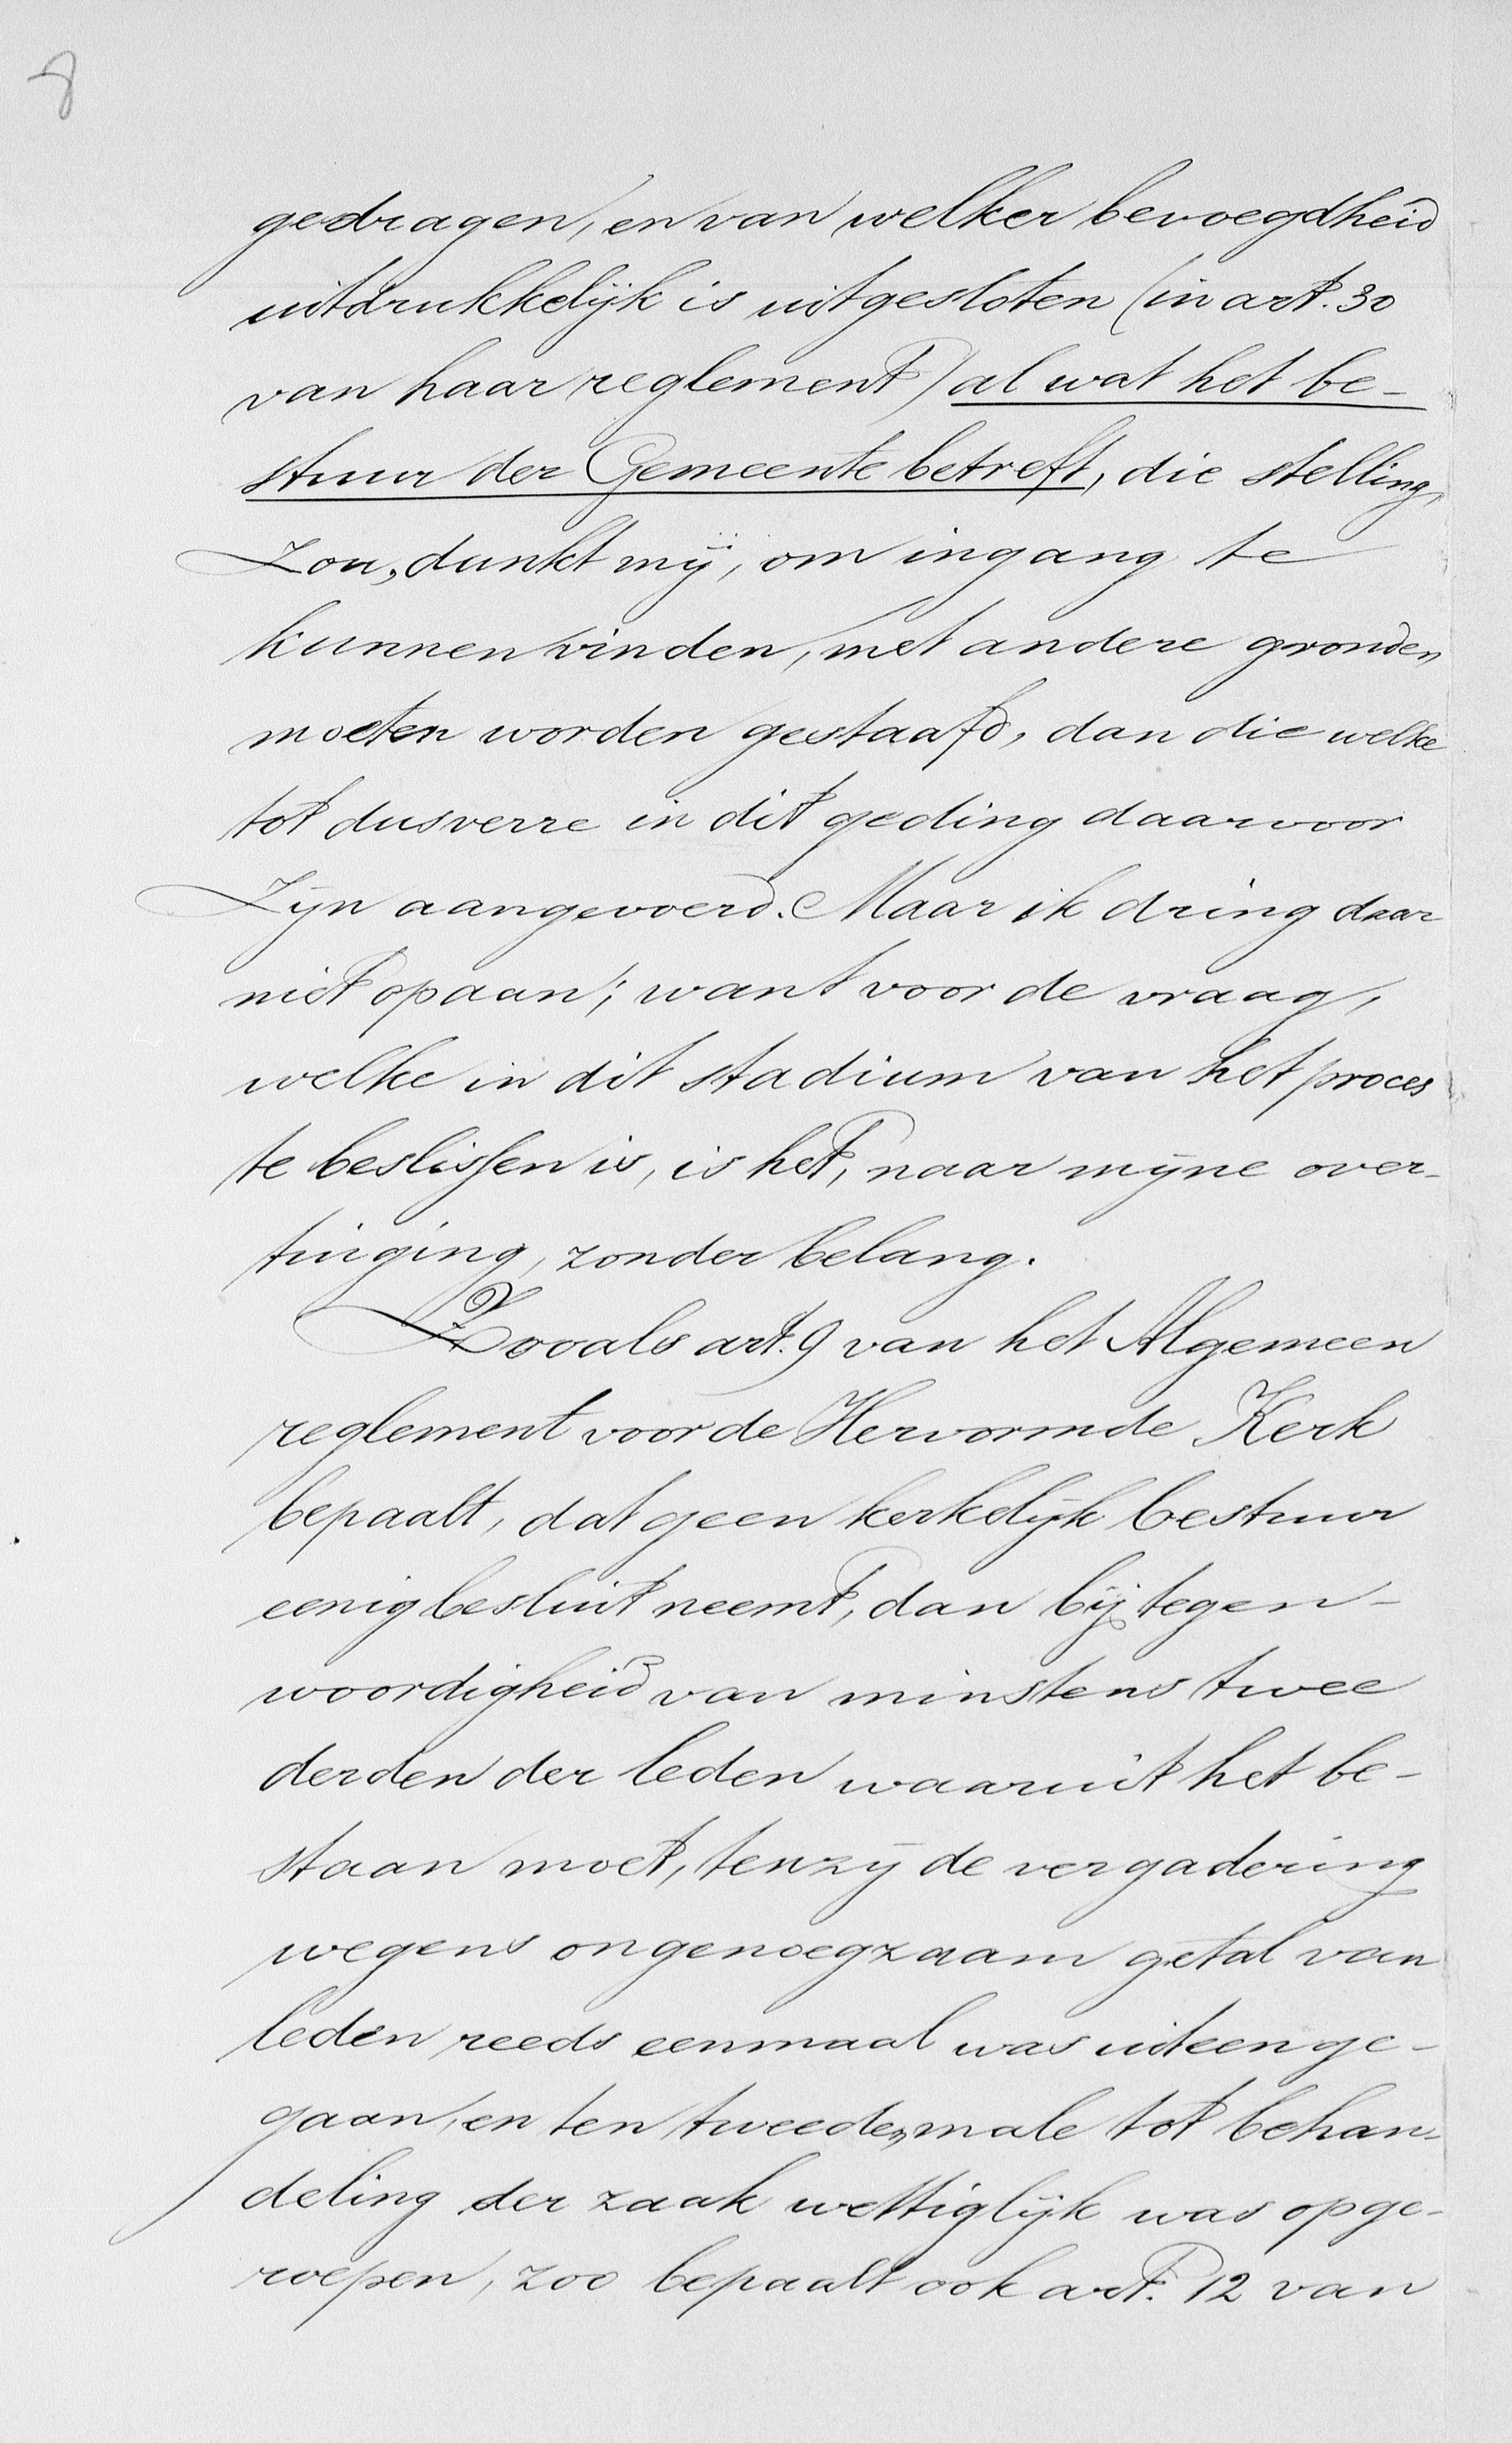 8
gedragen, en van welker bevoegdheid
uitdrukkelijk is uitgesloten (in art. 30
van haar reglement) al wat het be-
stuur der Gemeente betreft, die stelling,
zou, dunkt mij, om ingang te
kunnen vinden, met andere gronden
moeten worden gestaafd, dan die welke
tot dusverre in dit geding daarvoor
zijn aangevoerd. Maar ik dring daar
niet op aan; want voor de vraag,
welke in dit stadium van het proces
te beslissen is, is het, naar mijne over-
tuiging, zonder belang.
Zooals art. 9 van het Algemeen
reglement voor de Hervormde Kerk
bepaalt, dat geen kerkelijk bestuur
eenig besluit neemt, dan bij tegen-
woordigheid van minstens twee
derden der leden waaruit het be-
staan moet, tenzij de vergadering
wegens ongenoegzaam getal van
leden reeds eenmaal was uiteenge-
gaan, en ten tweedenmale tot behan-
deling der zaak wettiglijk was opge-
roepen, zoo bepaalt ook art. 12 van